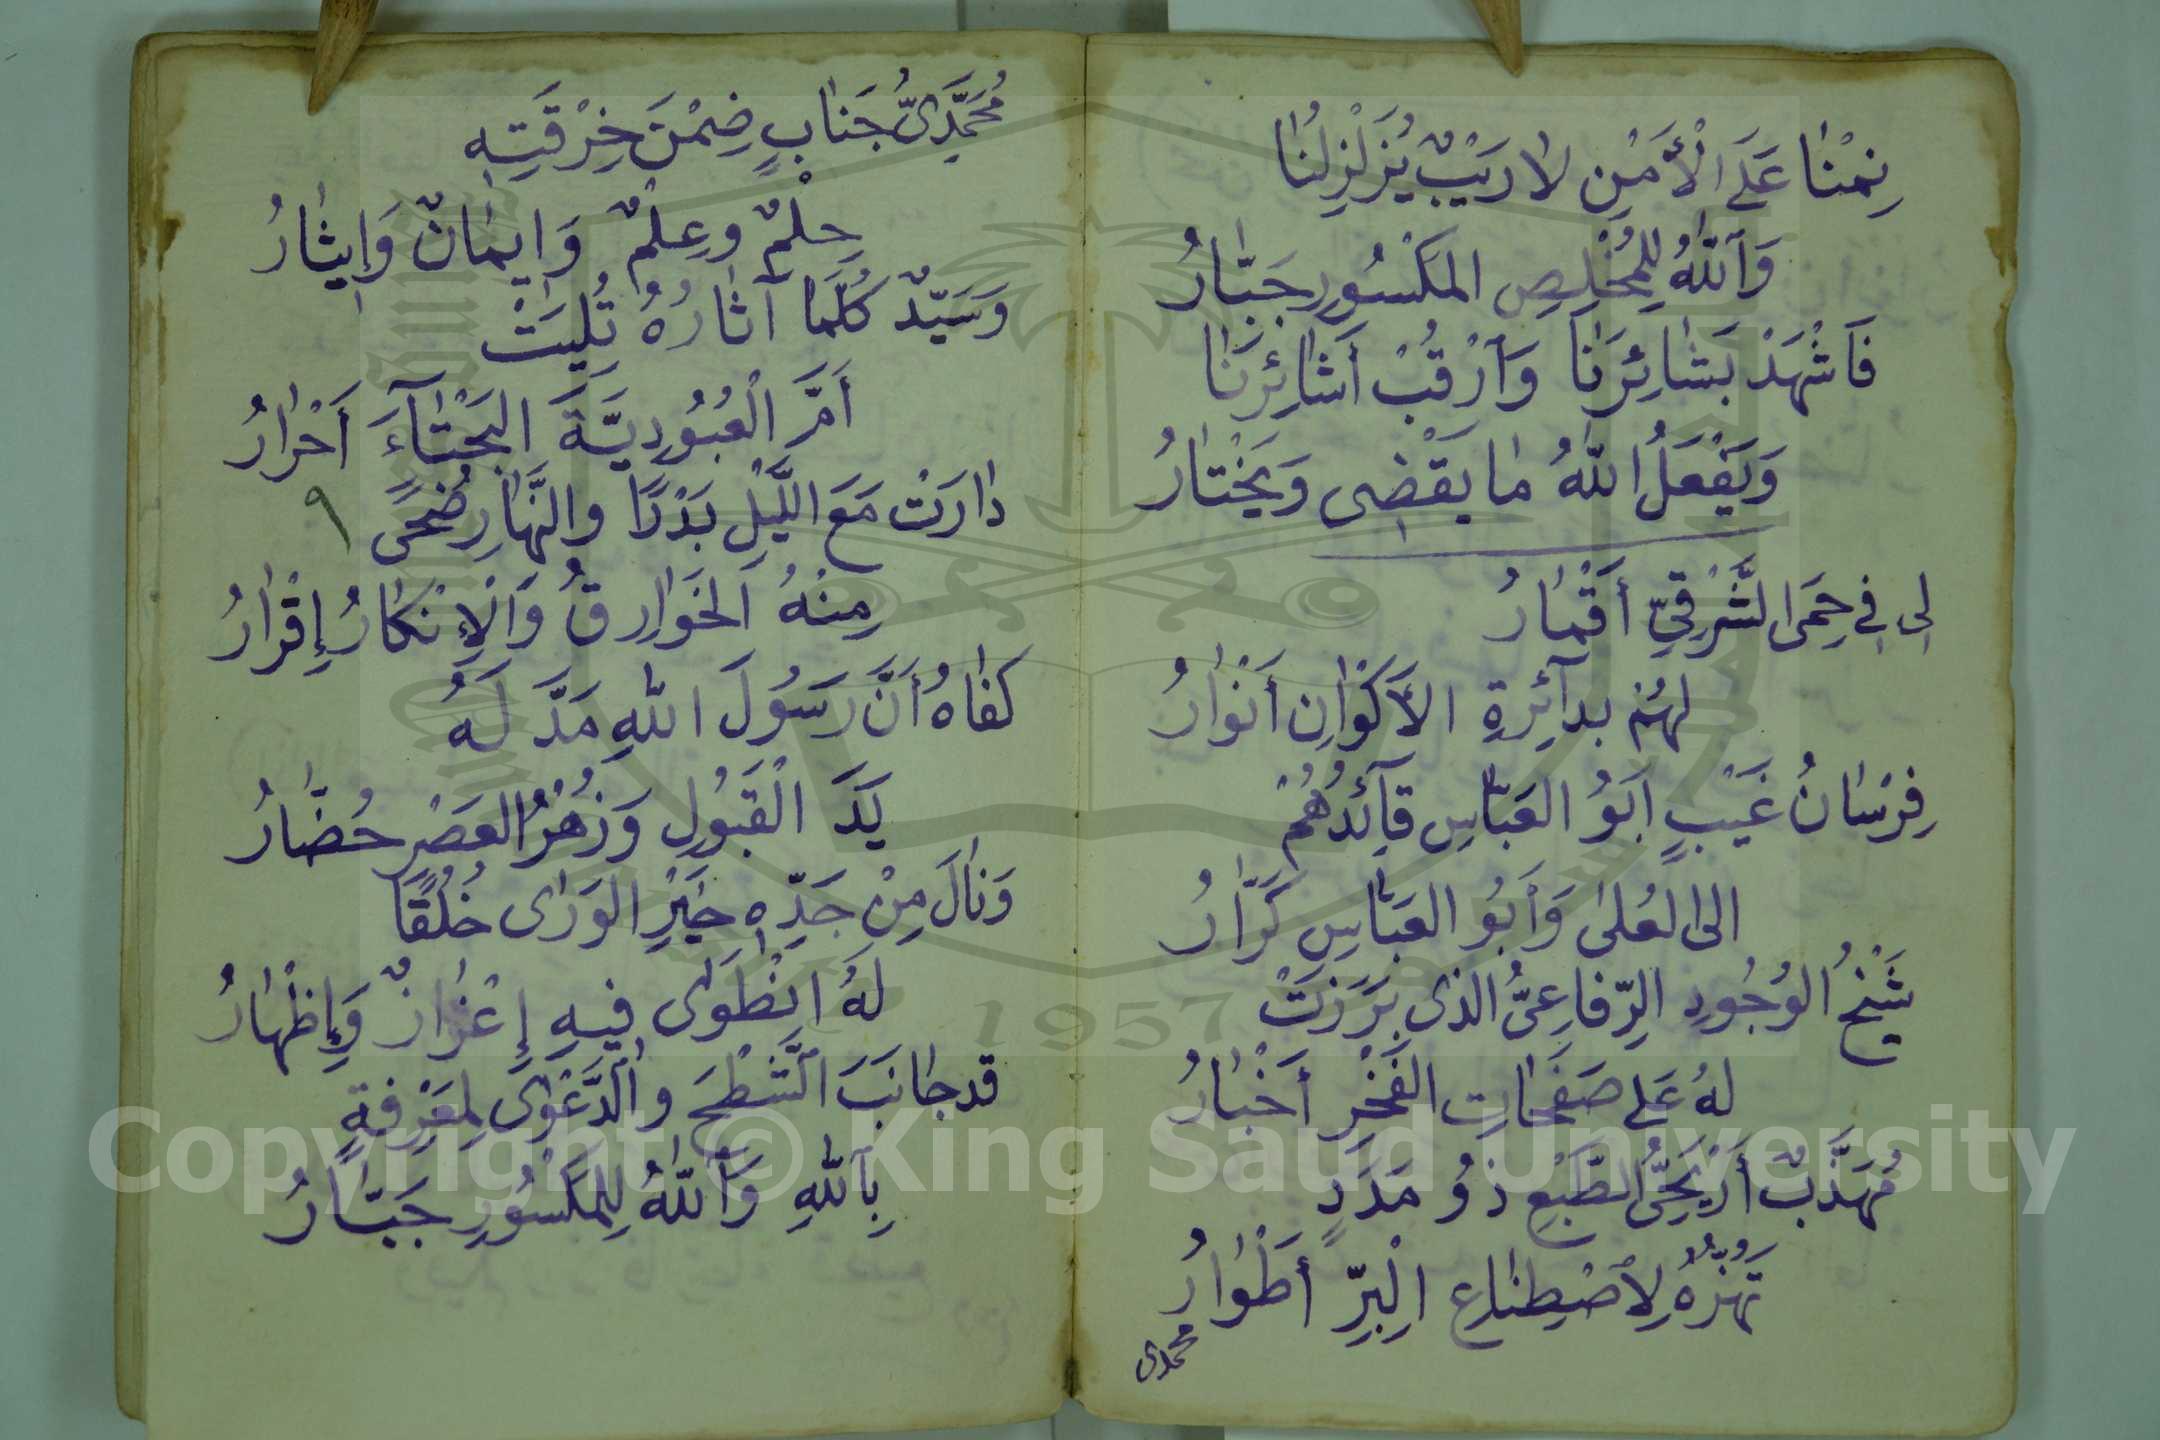 نِمْنٰا عَلَى الْأَمْنِ لٰا رَيْبٌ يُزَلْزِلُنٰا
وَٱللّٰهُ لِلْمُخْلِصِ المَكْسُورِ جَبّٰارُ
فَاشْهَدْ بَشٰائِرَنٰا وَٱرْقُبْ أَشٰائِرَنٰا
وَيَفْعَلُ اللّٰهُ مٰا يَقْضِى وَيَخْتٰارُ
لِى فِي حِمَى الشَّرْقِيِّ أَقْمٰارُ
لهُمْ بدآئِرةِ الأَكْوٰانِ أَنْوٰارُ
فِرْسٰانُ غَيْبٍ اَبُو العَبّٰاسِ قآئِدُهُمْ
الى العُلىٰ وَأَبُو العَبّٰاسِ كَرّٰارُ
شَيْخُ الوُجُودِ الرِّفاعِىُّ الذى بَرَزَتْ
لهُ عَلى صَفَحٰاتِ الفَخْرِ أَخْبٰارُ
مُهَذَّبٌ أَرْيَحِىُّ الطَّبْعِ ذُو مَدَدٍ
تَهُزُّهُ لِاصْطِنٰاعِ الْبِرِّ أَطْوٰارُ
محمدى
مُحَمَّدِىُّ جَنٰابٍ ضِمْنَ خِرْقَتِهِ
حِلْمٌ وعِلْمٌ وَايمٰانٌ وَإِيثٰارُ
وَسَيّدٌ كُلَّمٰا آثٰارُهُ تُلِيَتْ
أَمَّ الْعُبُودِيَّةَ البَحْتٰآءَ أَحْرٰارُ
دٰارَتْ مَعَ اللَّيْلِ بَدْرًا والنَّهٰارِ ضُحًى ٩
مِنْهُ الَخَوٰارِقُ وَالْإِنْكٰارُ إِقْرٰارُ
كَفٰاهُ أَنَّ رَسُولَ اللّٰهِ مَدَّ لَهُ
يَدَ الْقَبُولِ وَزُهْرُ العَصْرِ حُضّٰارُ
وَنٰالَ مِنْ جَدِّهِ خَيْرِ الوَرٰى خُلُقًا
لهُ انْطَوٰى فيهِ إِعْزٰازٌ وَإِظْهٰارُ
قد جٰانَبَ الشَّطْحَ والدَّعْوٰى لِمَعْرِفةٍ
بِٱللّٰهِ وَٱللّٰهُ لِلمَكْسُورِ جَبّٰارُ
1957
Copyright © King Saud University